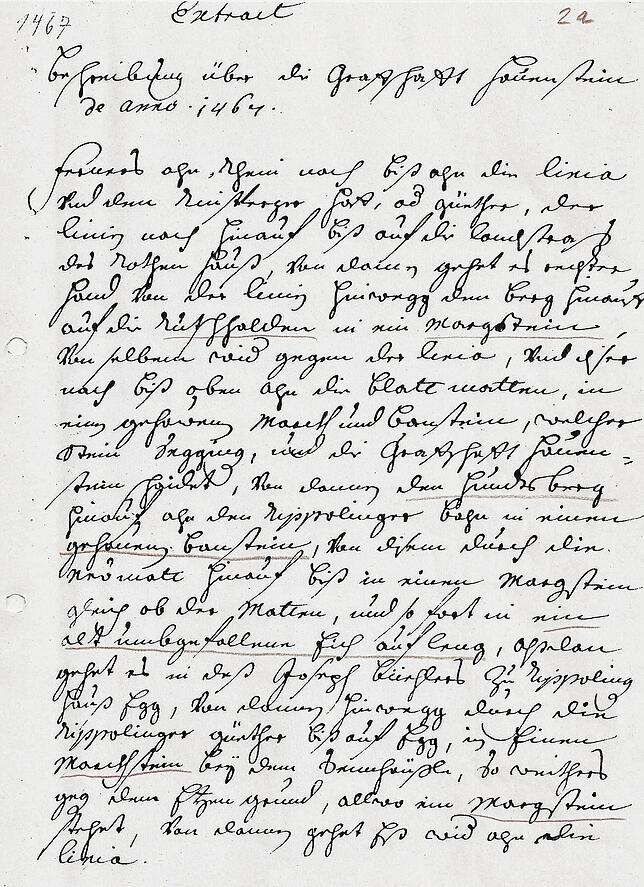 1467
Extract
2a
Beschreibung über die Graffschafft Hauenstein
de anno. 1467.
Ferners ahn Rhein nach biß ahn die linia
und dem hoff, güether, der
linia nach hinauf biß auf die landstraß
des Rothen Hauß, von dannen gehet es rechter
hand von der linia hinwegg den berg hinauf
auf die in ein Margstein,
von selbem wid gegen der linia, und diser
nach biß oben ahn die blattmatten, in
einen gehauwenen March und banstein, welcher
stein Segging, und die Graffschafft Hauen-
stein scheidet, von dannen den Hundsberg
hinauf ahn den Rippolinger bahn in einen
gehauenen banstein, von disem durch die
matt hinauf biß in einen Margstein
gleich ob der Matten, und so fort in ein
alt umbgefallene Eich auf leng, alsdan
gehet es in deß Joseph büehlers zu Rippoling
hauß Egg, von dannen hinwegg durch die
Rippolinger güether biß auf Egg, in Einen
Marchstein bey dem, so weithers
geg dem Etzen grund, allwo ein Margstein
stehet, von dannen gehet Eß wid ahn die
linia.